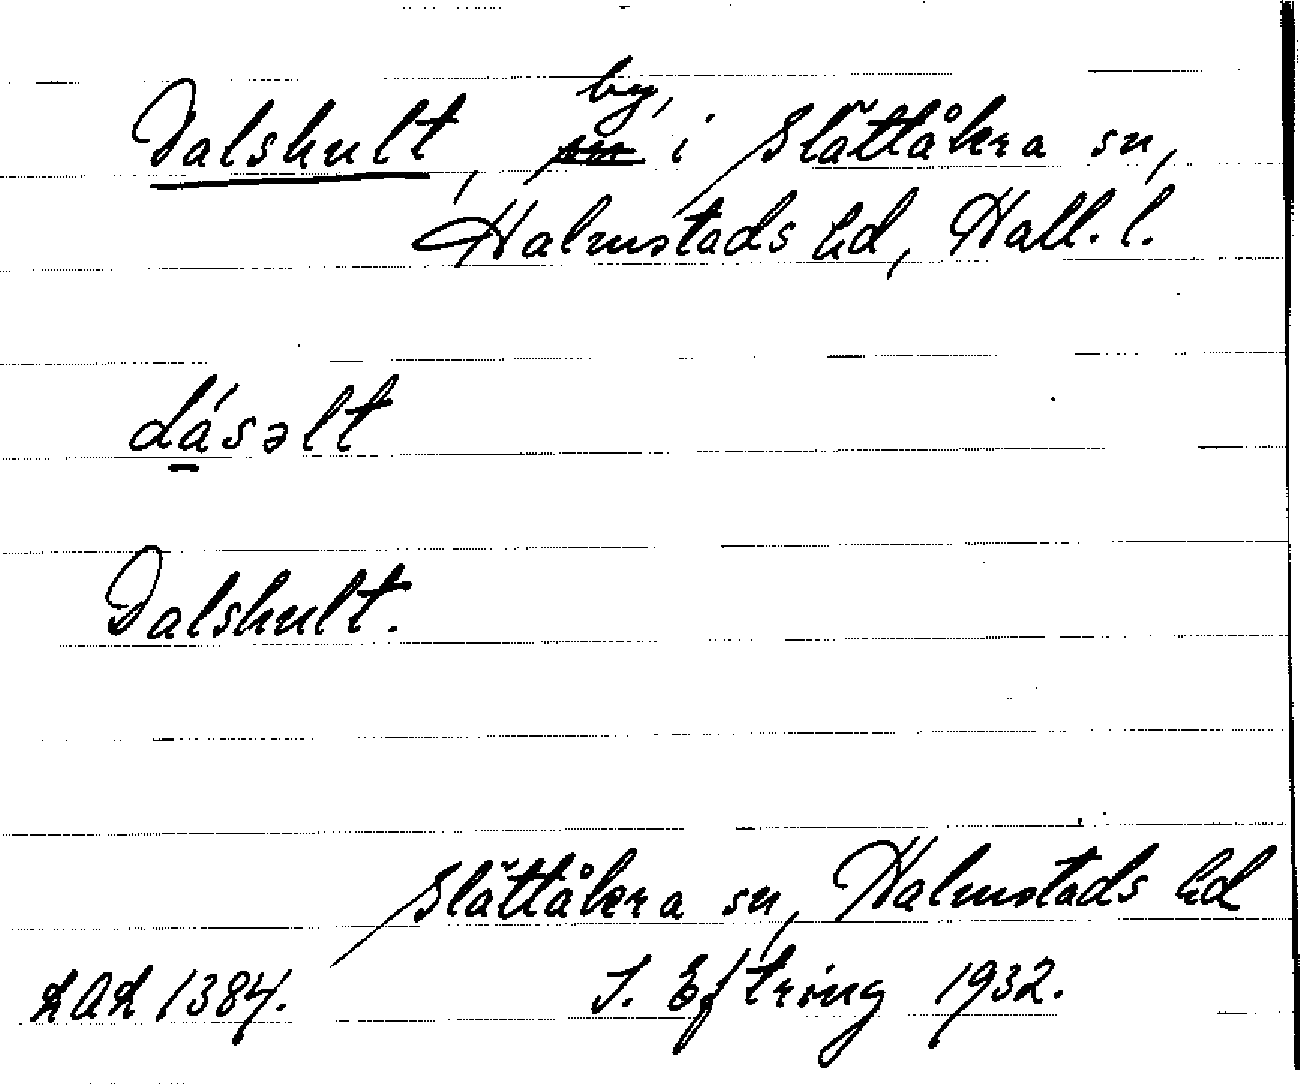 Dalshult, by, i Slättåkra sn,
Halmstads hd, Hall. l.
dásəlt
Dalshult.
Slättåkra sn, Halmstads hd
LAL 1384. S. Eftring 1932.